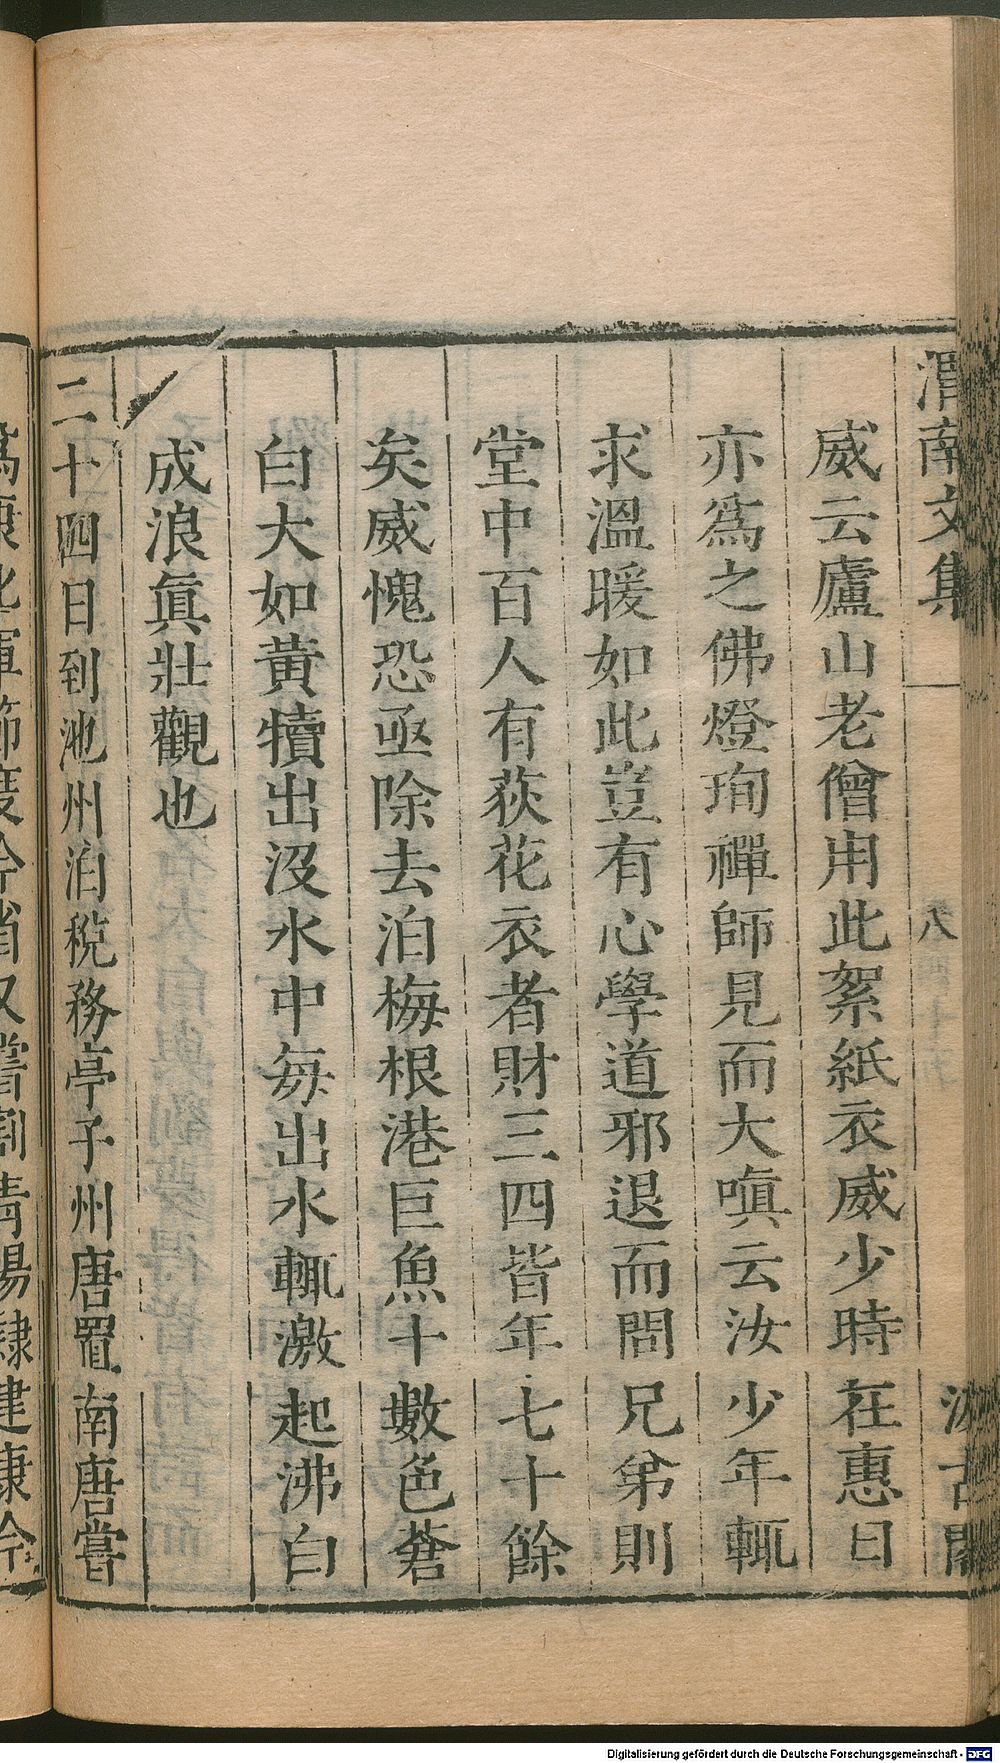 渭南文集 八 汲古閣
威云廬山老僧用此絮紙衣威少時在惠日
亦爲之佛燈珣禪師見而大嗔云汝少年輒
求溫暖如此豈有心學道邪退而問兄弟則
堂中百人有荻花衣者財三四皆年七十餘
矣威愧恐亟除去泊梅根港巨魚十數色蒼
白大如黃犢出沒水中每出水輒激起沸白
成浪眞壯觀也
二十四日到池州泊稅務亭子州唐置南唐嘗
爲康化軍節度今省又嘗割青陽隸建康今
Digitalisierung gefördert durch die Deutsche Forschungsgemeinschaft - DFG